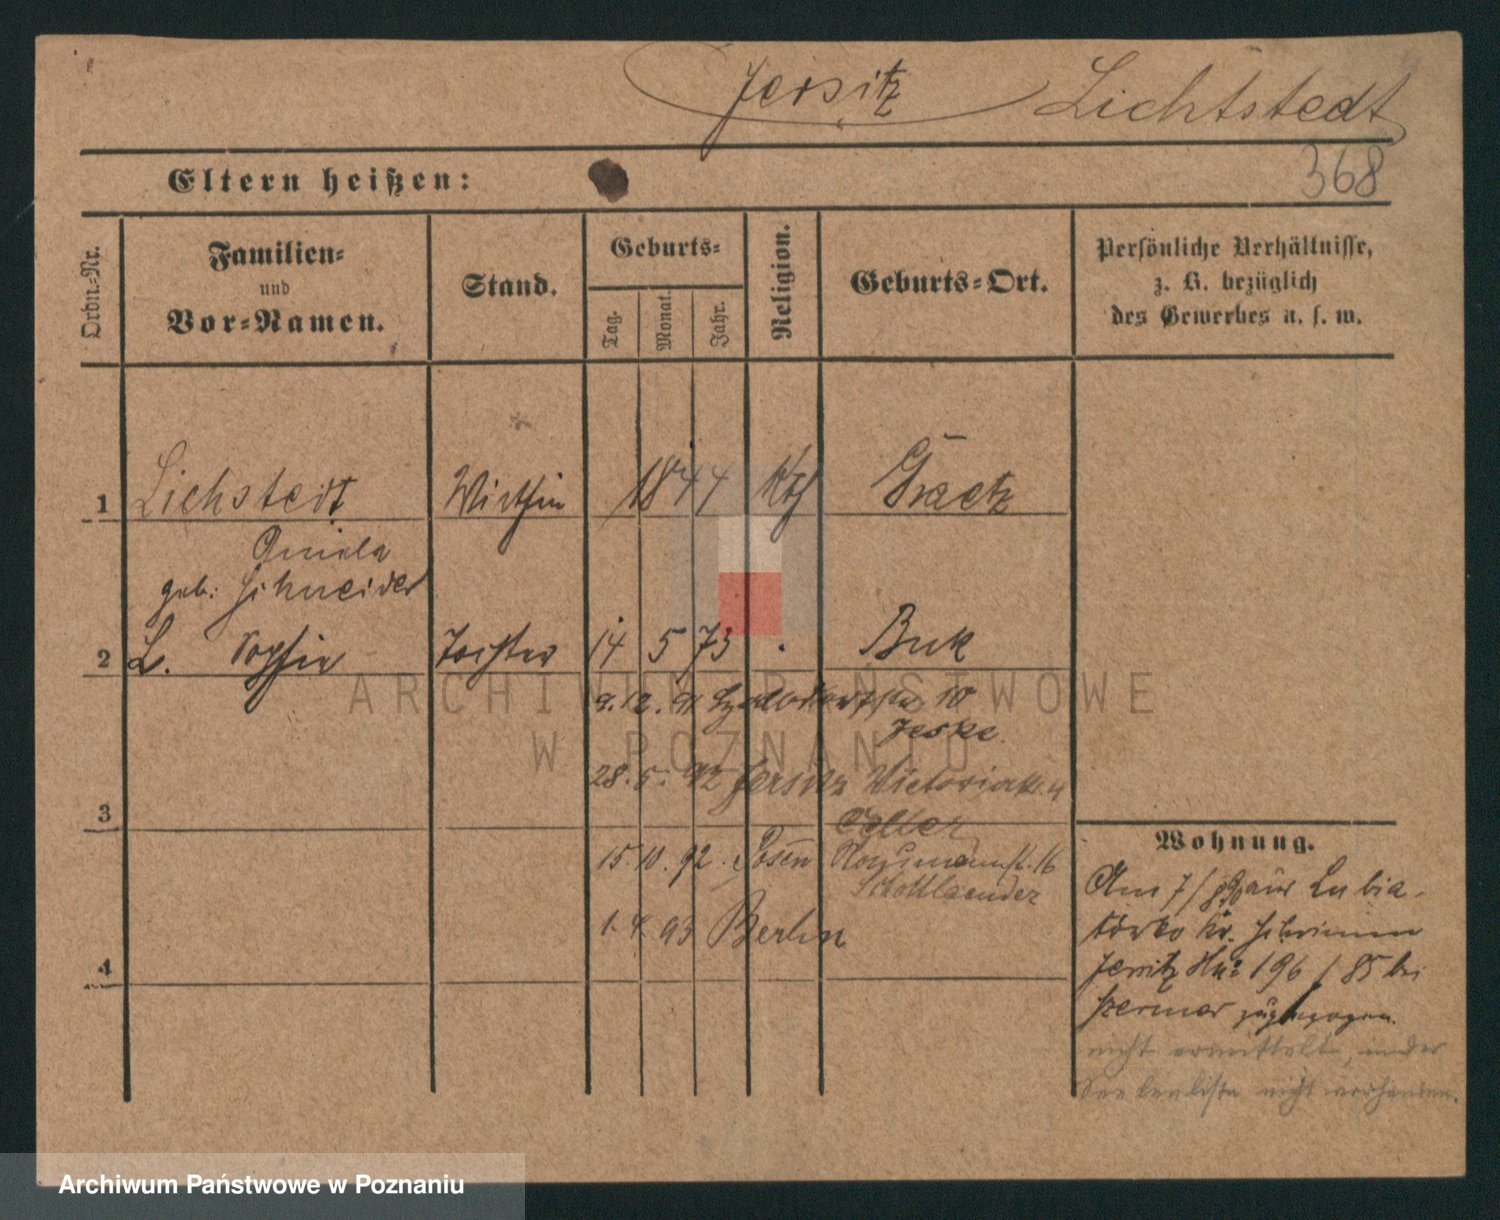 Jersitz Lichtstedt
368
Eltern heißen:
Ordn.-Nr.
Familien-
und
Vor-Namen.
Stand.
Geburts-
Tag.
Monat.
Jahr.
Religion.
Geburts-Ort.
Persönliche Verhältnisse,
z. B. bezüglich
des Gewerbes u. s. w.
1 Lichstedt Wirthin 1844 Kth Graetz
Aniela
geb: Schneider
2 L. Sophie Tochter 14 5 73 Buk
9. 12. 91 10
Jeske.
28. 5. 92 Jersitz Victoriastr.
3
15. 10. 92. Posen Naumannstr. 16
Schottlaender
1. 4 93 Berlin
4
Wohnung.
Am 7/ aus Lubia-
towko Kr. Schrimm
Jersitz No 196 / 85 bei
zugezogen.
nicht ermittelt, in der
Seelenliste nicht vorhanden.
ARCHIWUM PAŃSTWOWE
W POZNANIU
Archiwum Państwowe w Poznaniu